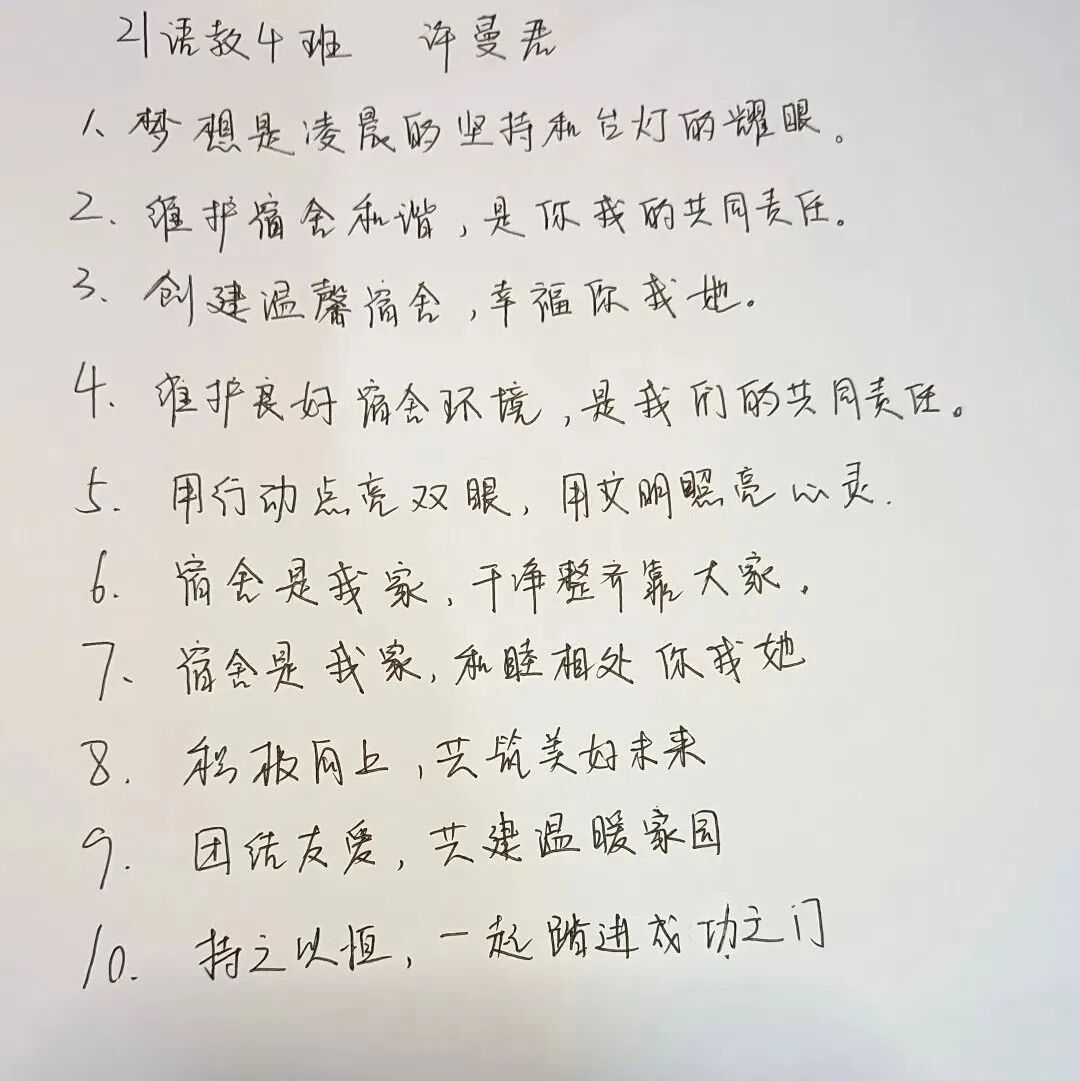 21语教4班 许曼君
1、梦想是凌晨的坚持和台灯的耀眼。
2、维护宿舍和谐,是你我的共同责任。
3、创建温馨宿舍,幸福你我她。
4、维护良好宿舍环境,是我们的共同责任。
5.用行动点亮双眼,用文明照亮心灵.
6.宿舍是我家,干净整齐靠大家.
7、宿舍是我家,和睦相处你我她
8.积极向上,共筑美好未来
9.团结友爱,共建温暖家园
10.持之以恒,一起踏进成功之门